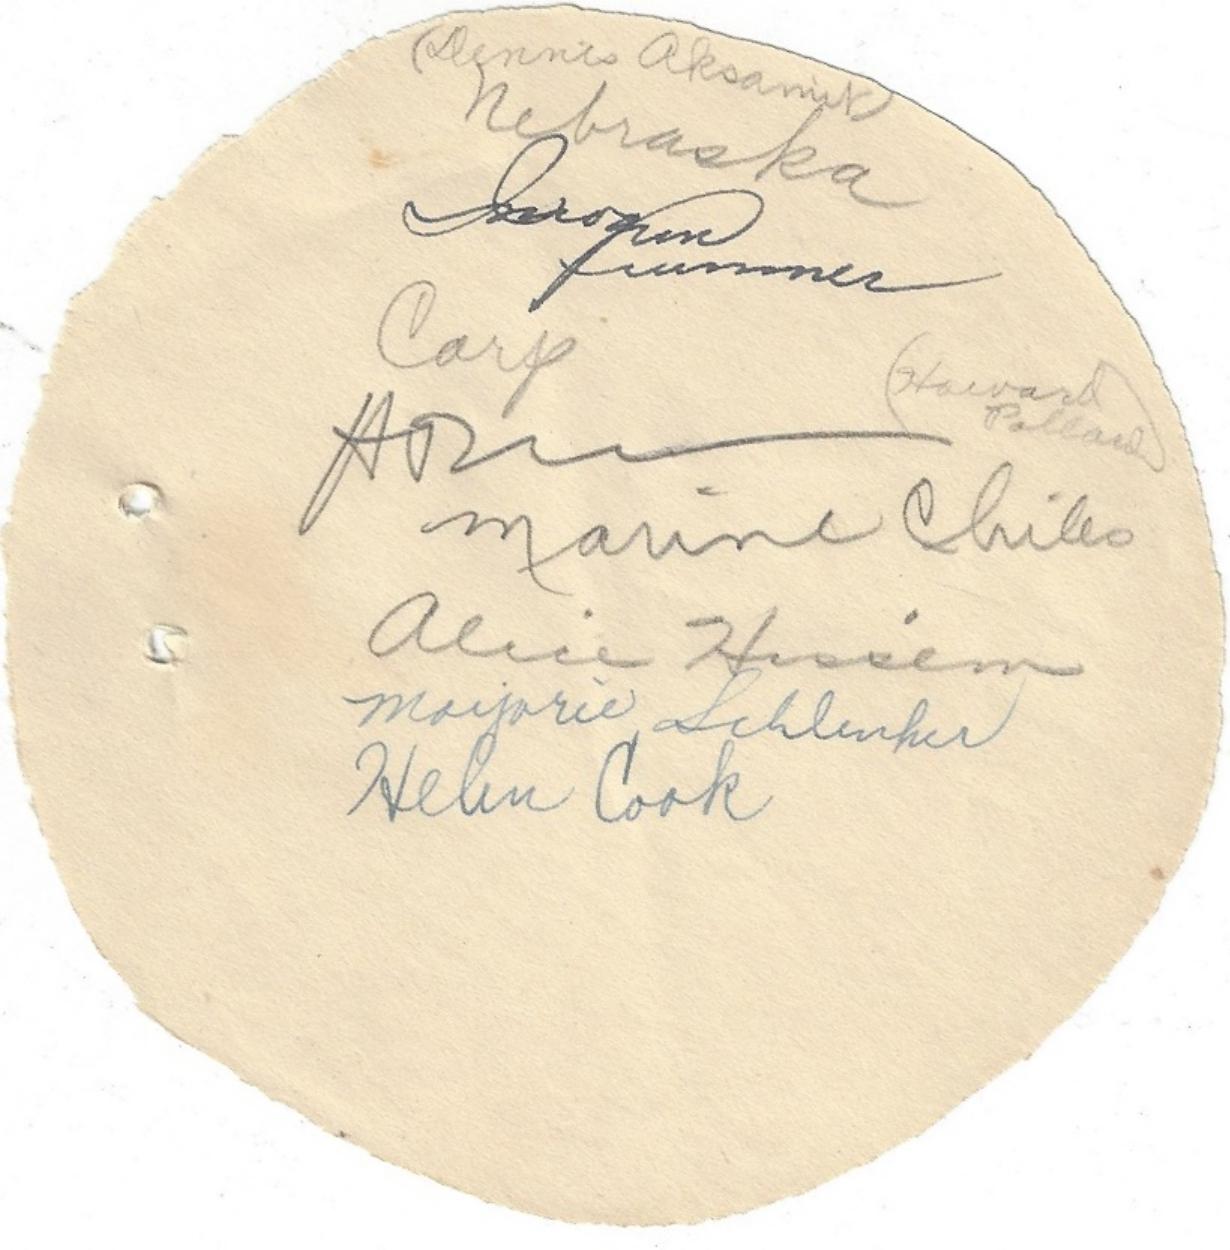 (Dennis Aksamit)
Nebraska
Carp
(Howard
Pollard)
Marine Chiles
Alice Hissem
Marjorie Schlenker
Helen Cook